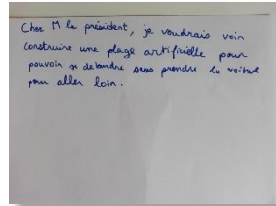 Cher M le président, je voudrais voir
construire une plage artificielle pour
pouvoir se detendre sans prendre la voiture
pour aller loin.